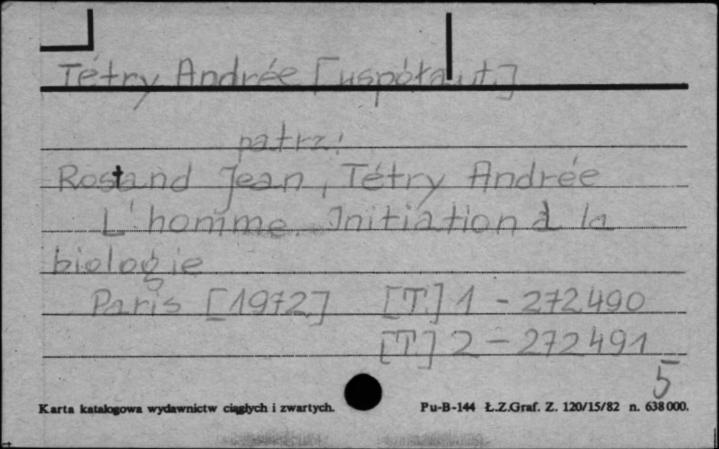 Tétry Andrée [współaut.]
patrz:
Rostand Jean, Tétry Andrée
L'homme. Initiation à la
biologie
Paris [1972] [T.] 1 - 272490
[T.] 2 - 272491
5
Karta katalogowa wydawnictw ciągłych i zwartych. Pu-B-144 Ł.Z.Graf. Z. 120/15/82 n. 638000.